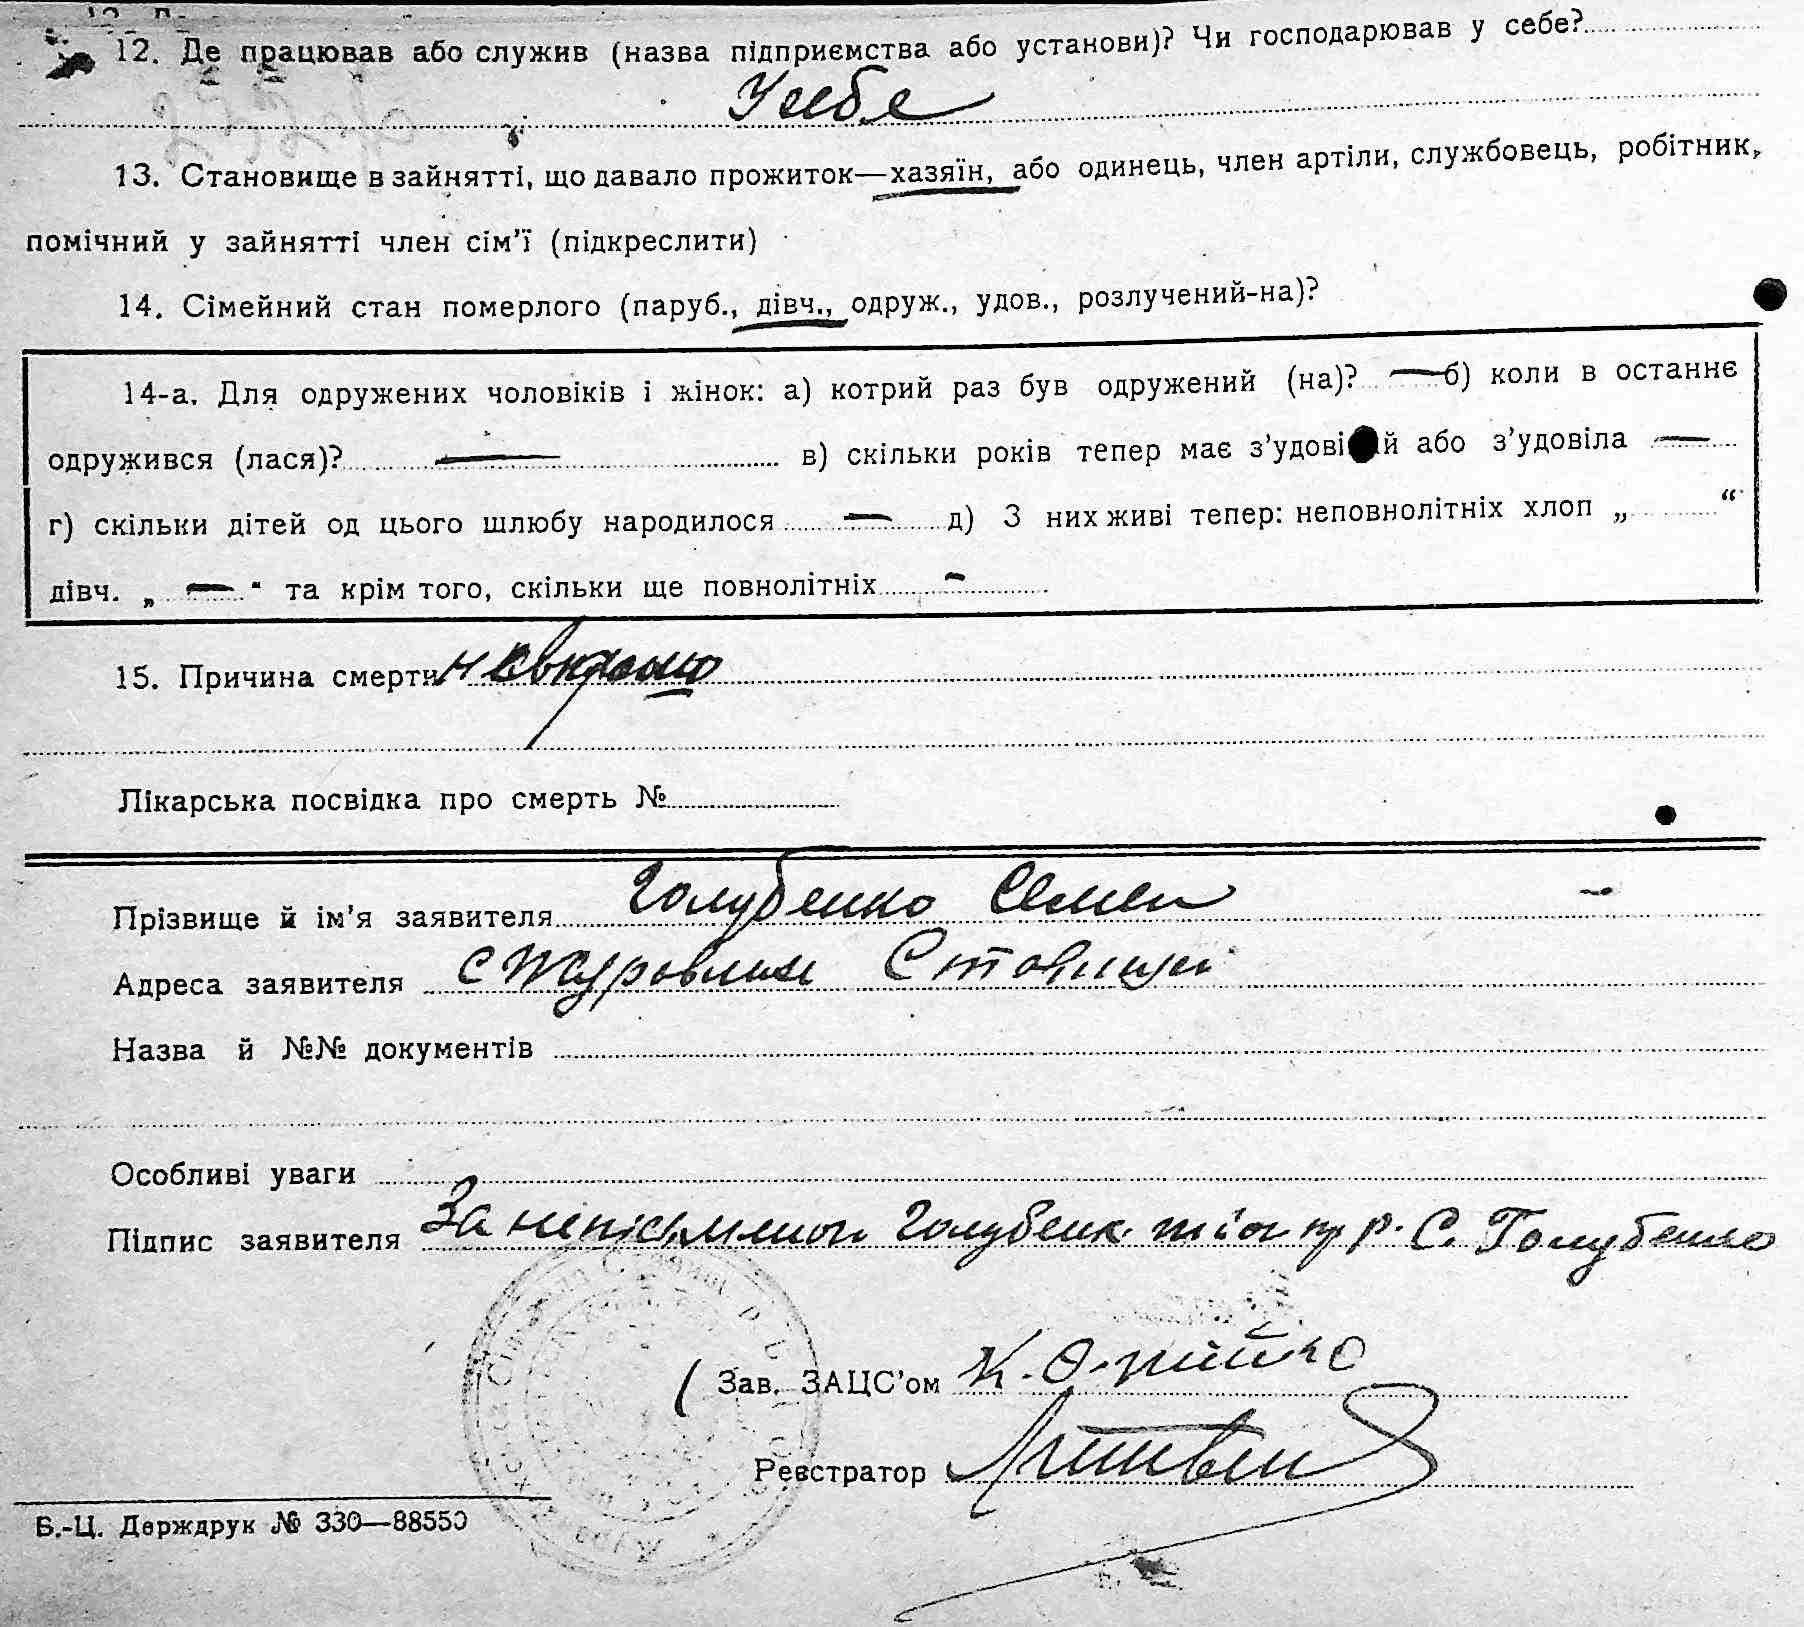 12. Де працював або служив (назва підприємства або установи)? Чи господарював у себе?
У себе
13. Становище в зайнятті, що давало прожиток—хазяїн, або одинець, член артіли, службовець, робітник,
помічний у зайнятті член сім'ї (підкреслити)
14. Сімейний стан померлого (паруб., дівч., одруж., удов., розлучений-на)?
14-а. Для одружених чоловіків і жінок: а) котрий раз був одружений (на)? — б) коли в останнє
одружився (лася)? — в) скільки років тепер має з'удові й або з'удовіла —
г) скільки дітей од цього шлюбу народилося — д) З них живі тепер: неповнолітніх хлоп „ “
дівч. „ — “ та крім того, скільки ще повнолітніх -
15. Причина смерти невідомо
Лікарська посвідка про смерть №
Прізвище й ім'я заявителя Голубенко Семен
Адреса заявителя с Журовлиха Ставищ
Назва й №№ документів
Особливі уваги
Підпис заявителя За неписьмен Голубенк С. Голубенко
Зав. ЗАЦС'ом К.
Реєстратор Литвин
Б.-Ц. Держдрук № 330—88550